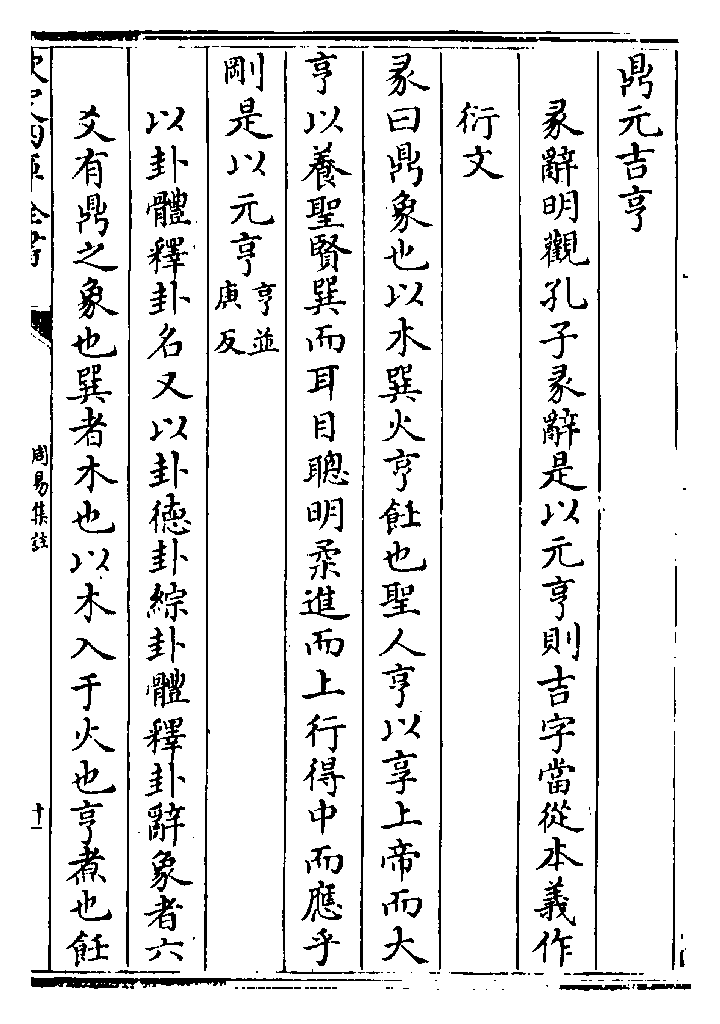 鼎元吉亨
彖辭明觀孔子彖辭是以元亨則吉字當從本義作
衍文
彖曰鼎象也以木巽火亨飪也聖人亨以享上帝而大
亨以養聖賢巽而耳目聰明柔進而上行得中而應乎
剛是以元亨亨並庚反
以卦體釋卦名又以卦德卦綜卦體釋卦辭象者六
爻有鼎之象也巽者木也以木入于火也亨煮也飪
欽定四庫全書
周易集註
十一